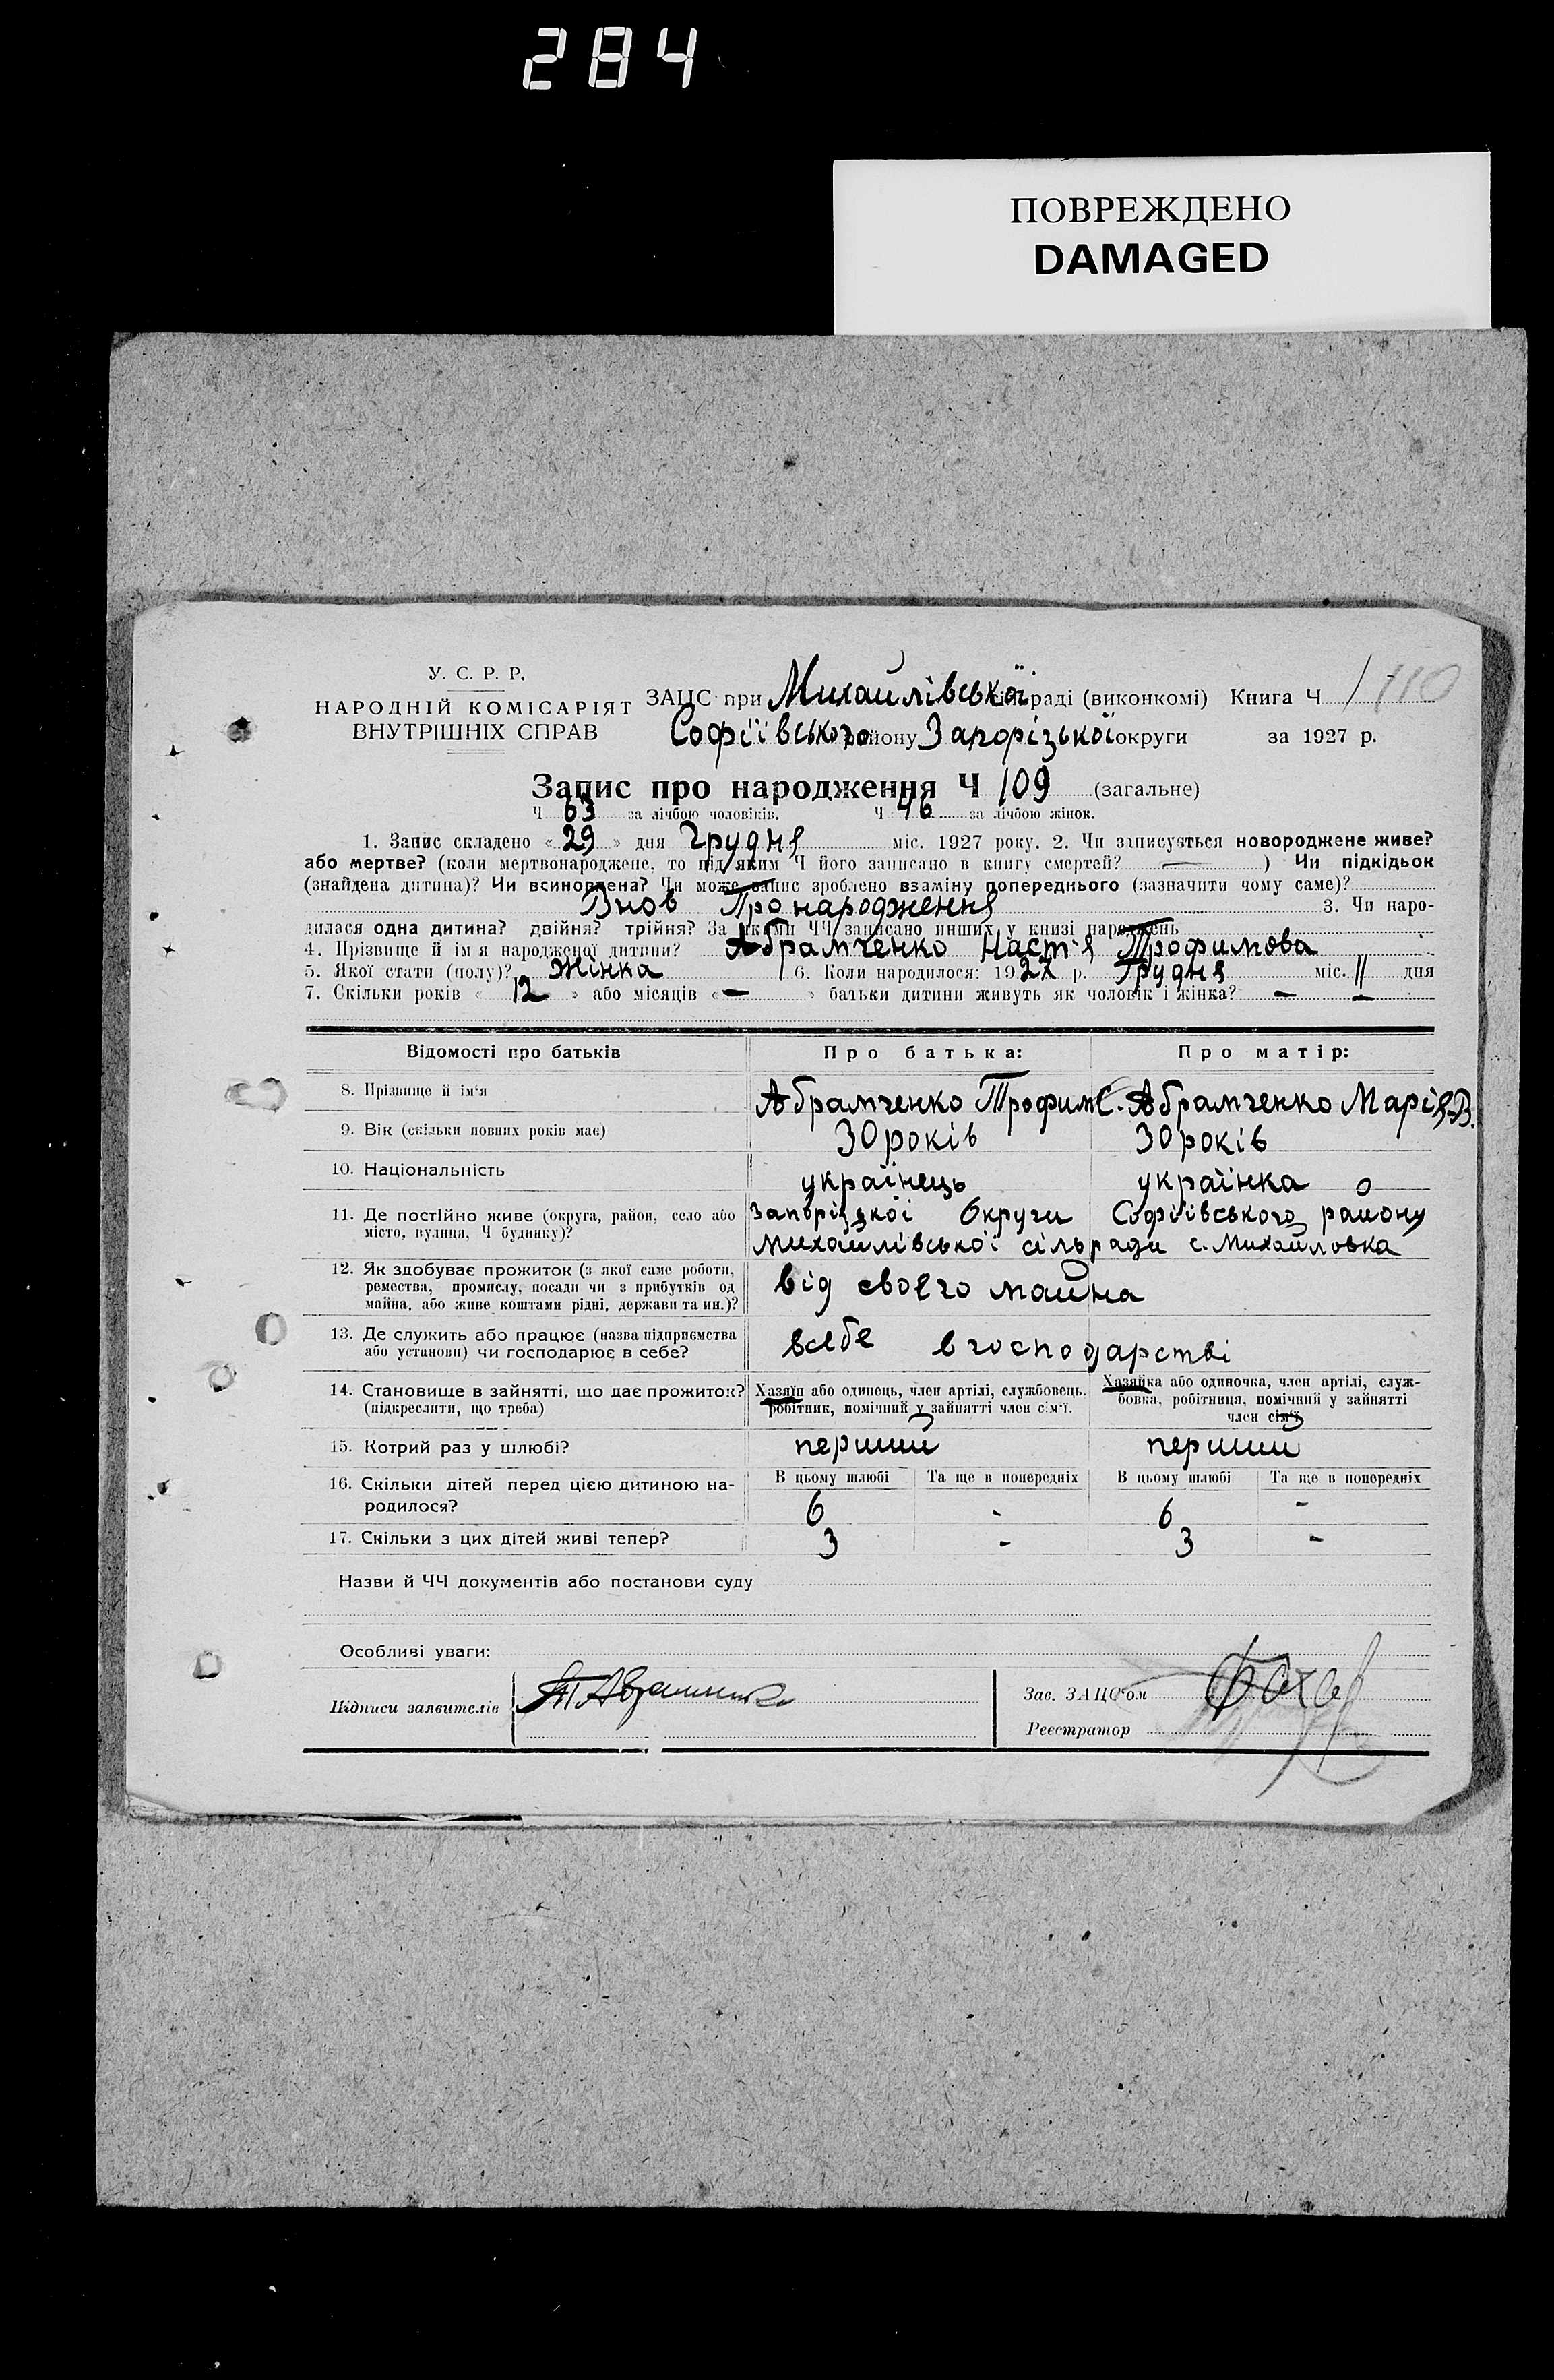 284
ПОВРЕЖДЕНО
DAMAGED
У. С. Р. Р.
НАРОДНІЙ КОМІСАРІЯТ
ВНУТРІШНІХ СПРАВ
ЗАЦС при Михайлівської сільраді (виконкомі) Книга Ч 1 110
Софіївського району Запорізької округи за 1927 р.
Запис про народження Ч 109 (загальне)
Ч 63 за лічбою чоловіків. Ч 46 за лічбою жінок.
1. Запис складено « 29 » дня Грудня міс. 1927 року. 2. Чи записується новороджене живе?
або мертве? (коли мертвонароджене, то під яким Ч його записано в книгу смертей? — ) Чи підкідьок
(знайдена дитина)? Чи всиновлена? Чи може запис зроблено взаміну попереднього (зазначити чому саме)?
Внов Про народження 3. Чи наро-
дилася одна дитина? двійня? трійня? За якими ЧЧ записано инших у книзі народжень
4. Прізвище й ім'я народженої дитини? Абрамченко Наст'я Трофимова
5. Якої стати (полу)? Жінка 6. Коли народилося: 1927 р. Грудня міс. 11 дня
7. Скільки років « 12 » або місяців « — » батьки дитини живуть як чоловік і жінка? — —
Відомості про батьків Про батька: Про матір:
8. Прізвище й ім'я Абрамченко Трофим С. Абрамченко Марія В.
9. Вік (скільки повних років має) 30 років 30 років
10. Національність українець українка
11. Де постійно живе (округа, район, село або Запорізької Округи Софіївського району
місто, вулиця, Ч будинку)? Михайлівської сільради с. Михайловка
12. Як здобуває прожиток (з якої саме роботи,
ремества, промислу, посади чи з прибутків од від своего майна
майна, або живе коштами рідні, держави та ин.)?
13. Де служить або працює (назва підприємства
або установи) чи господарює в себе? всебе в господарстві
14. Становище в зайнятті, що дає прожиток? Хазяїн або одинець, член артілі, службовець, Хазяйка або одиночка, член артілі, служ-
(підкреслити, що треба) робітник, помічний у зайнятті член сім'ї. бовка, робітниця, помічний у зайнятті
член сім'ї
15. Котрий раз у шлюбі? перший перший
16. Скільки дітей перед цією дитиною на- В цьому шлюбі Та ще в попередніх В цьому шлюбі Та ще в попередніх
родилося? 6 - 6 -
17. Скільки з цих дітей живі тепер? 3 - 3 -
Назви й ЧЧ документів або постанови суду
Особливі уваги:
Підписи заявителів Зав. ЗАЦС'ом
Реєстратор